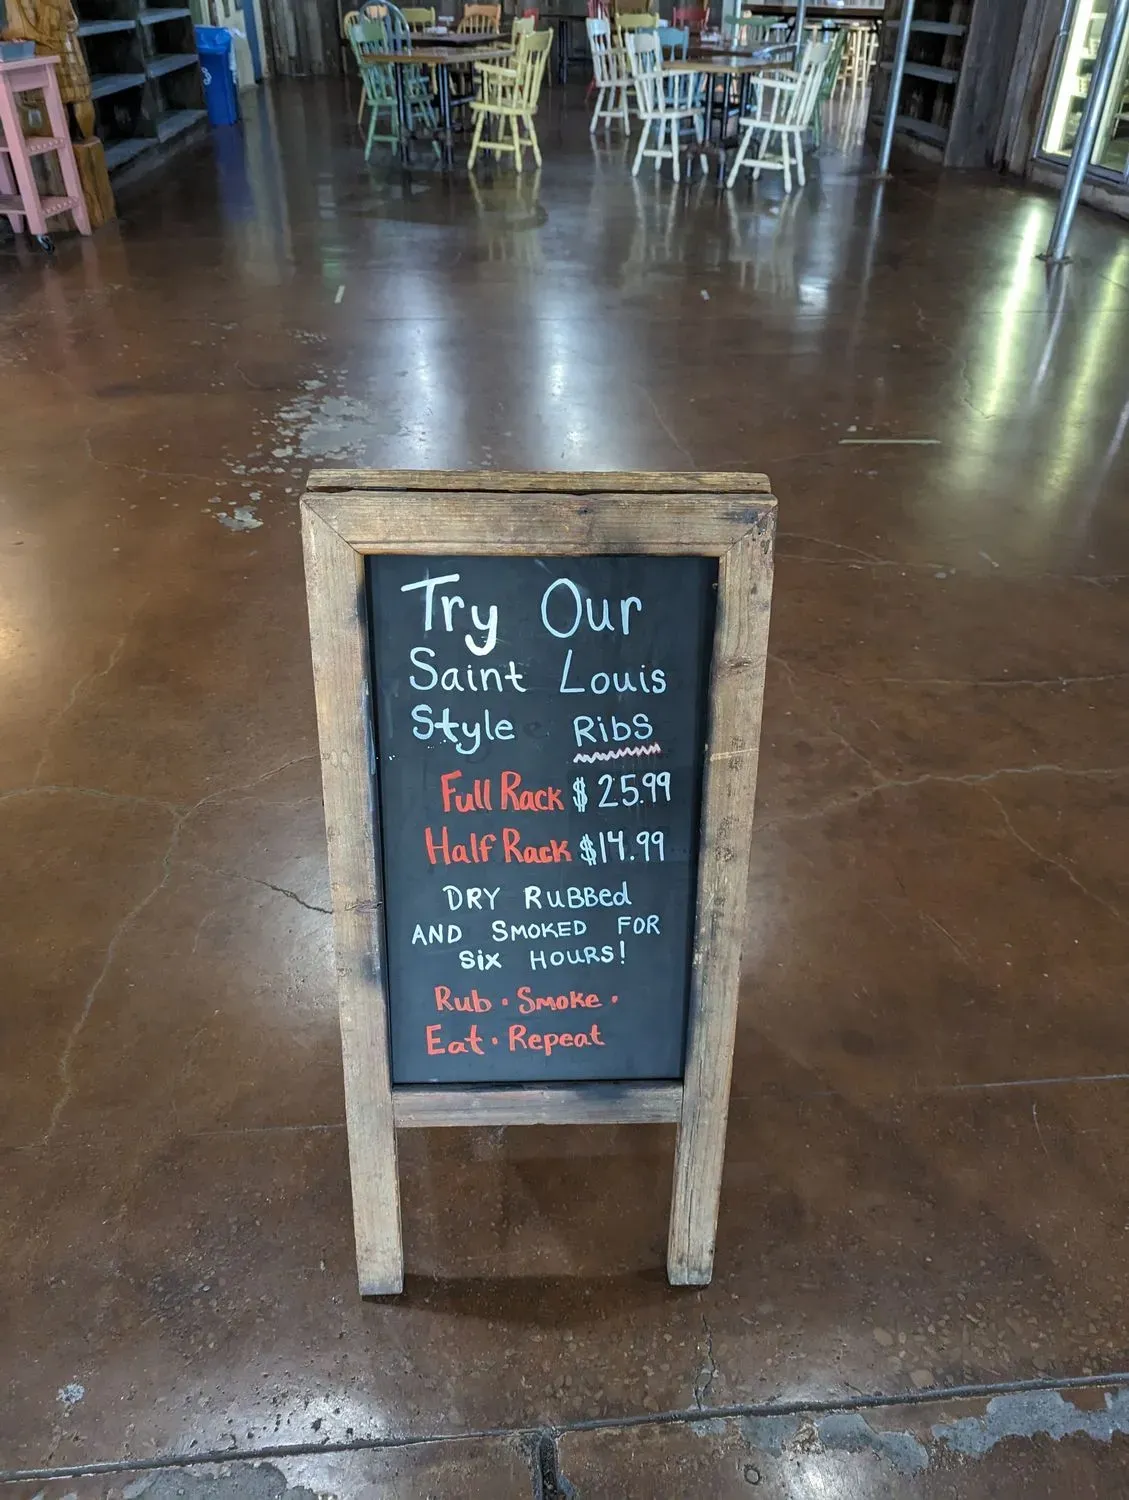 Try Our
Saint Louis
Style Ribs
Full Rack $ 25.99
Half Rack $14.99
DRY RuBBed
AND SMOKED FOR
Six HOURS!
Rub · Smoke ·
Eat · Repeat